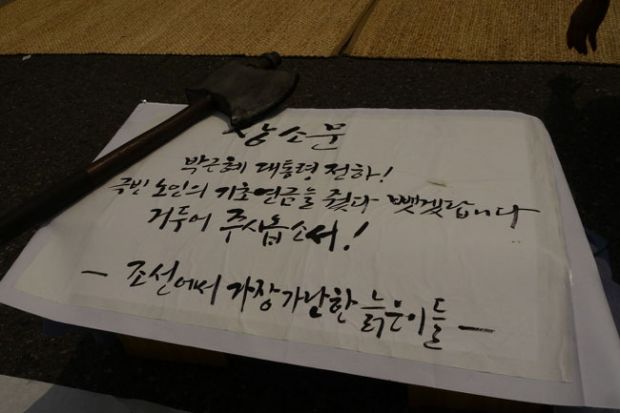 상소문
박근혜 대통령 전하!
극빈 노인의 기초연금을 줬다 뺏겠랍니다
거두어 주시옵소서!
— 조선에서 가장 가난한 늙은이들 —